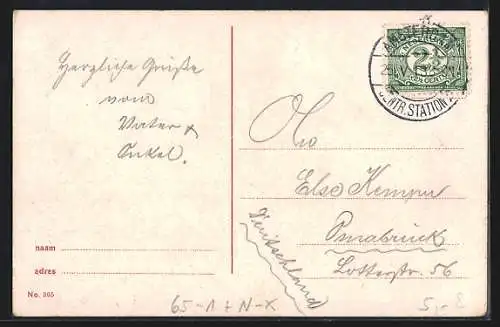 Herzliche Grüße
vom
Vater &
Onkel.
naam
adres
No. 365
AMSTERDAM
CENTR. STATION
2½
CENT
Else Kemper
Osnabrück
Lotterstr. 56
Deutschland
65-1+N-X
5,-E